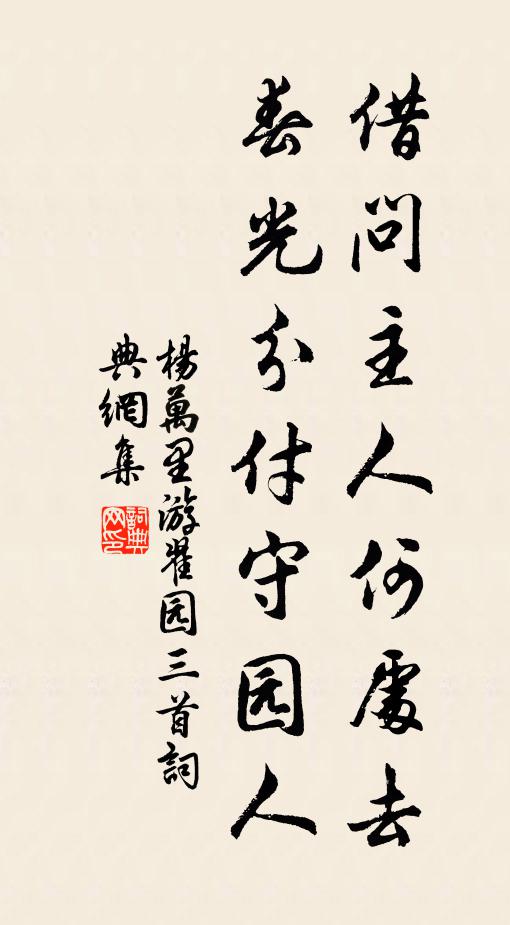 借問主人何處去
春光分付守园人
楊萬里游翟园三首詞
典網集
詞典
网印